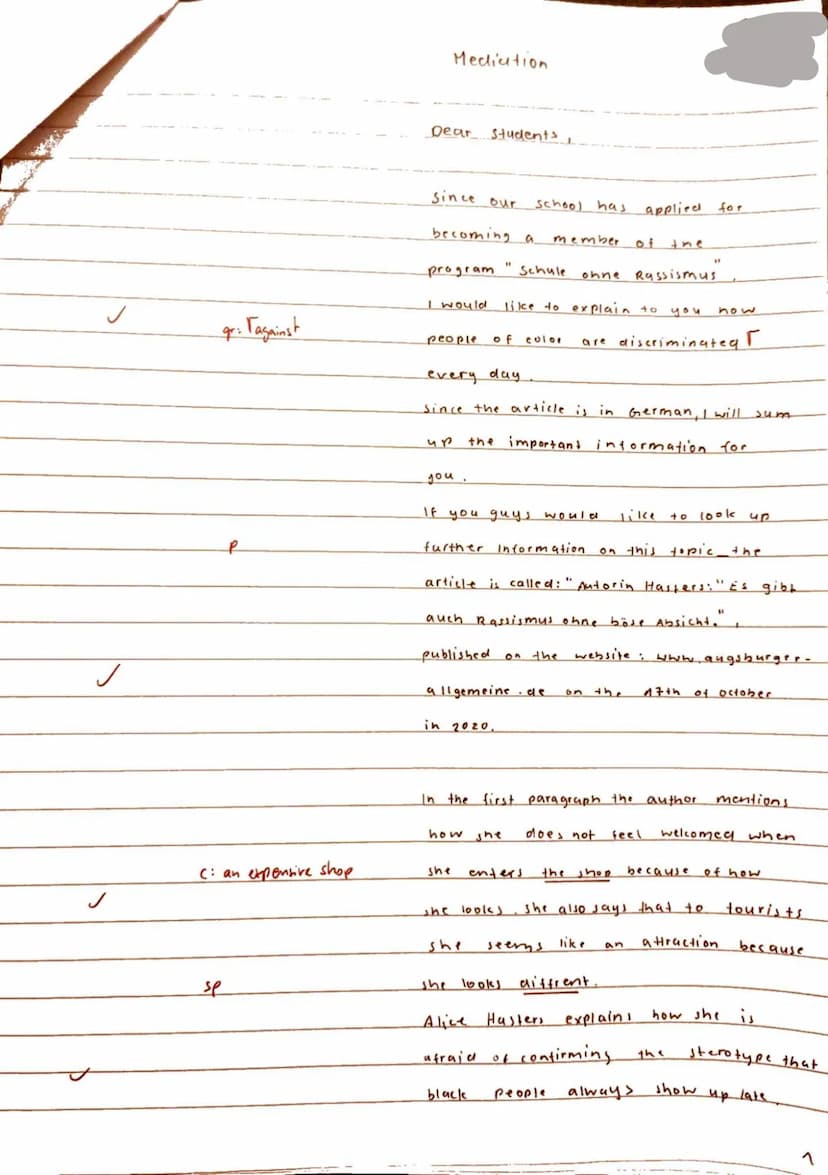 Mediation
Dear students,
Since our school has applied for
becoming a member of the
program "Schule ohne Rassismus",
I would like to explain to you how
✓ gr: Γagainst people of color are discriminated Γ
every day.
Since the article is in German, I will sum
up the important information for
you.
If you guys would like to look up
p further information on this topic_the
article is called: "Autorin Hasters: "Es gibt
auch Rassismus ohne böse Absicht.",
published on the website: www.augsburger-
✓ allgemeine.de on the 17th of october
in 2020.
In the first paragraph the author mentions
how she does not feel welcomed when
C: an expensive shop she enters the shop because of how
✓ she looks. She also says that to tourists
she seems like an attraction because
sp she looks diffrent.
Alice Hasters explains how she is
afraid of confirming the sterotype that
✓ black people always show up late.
1